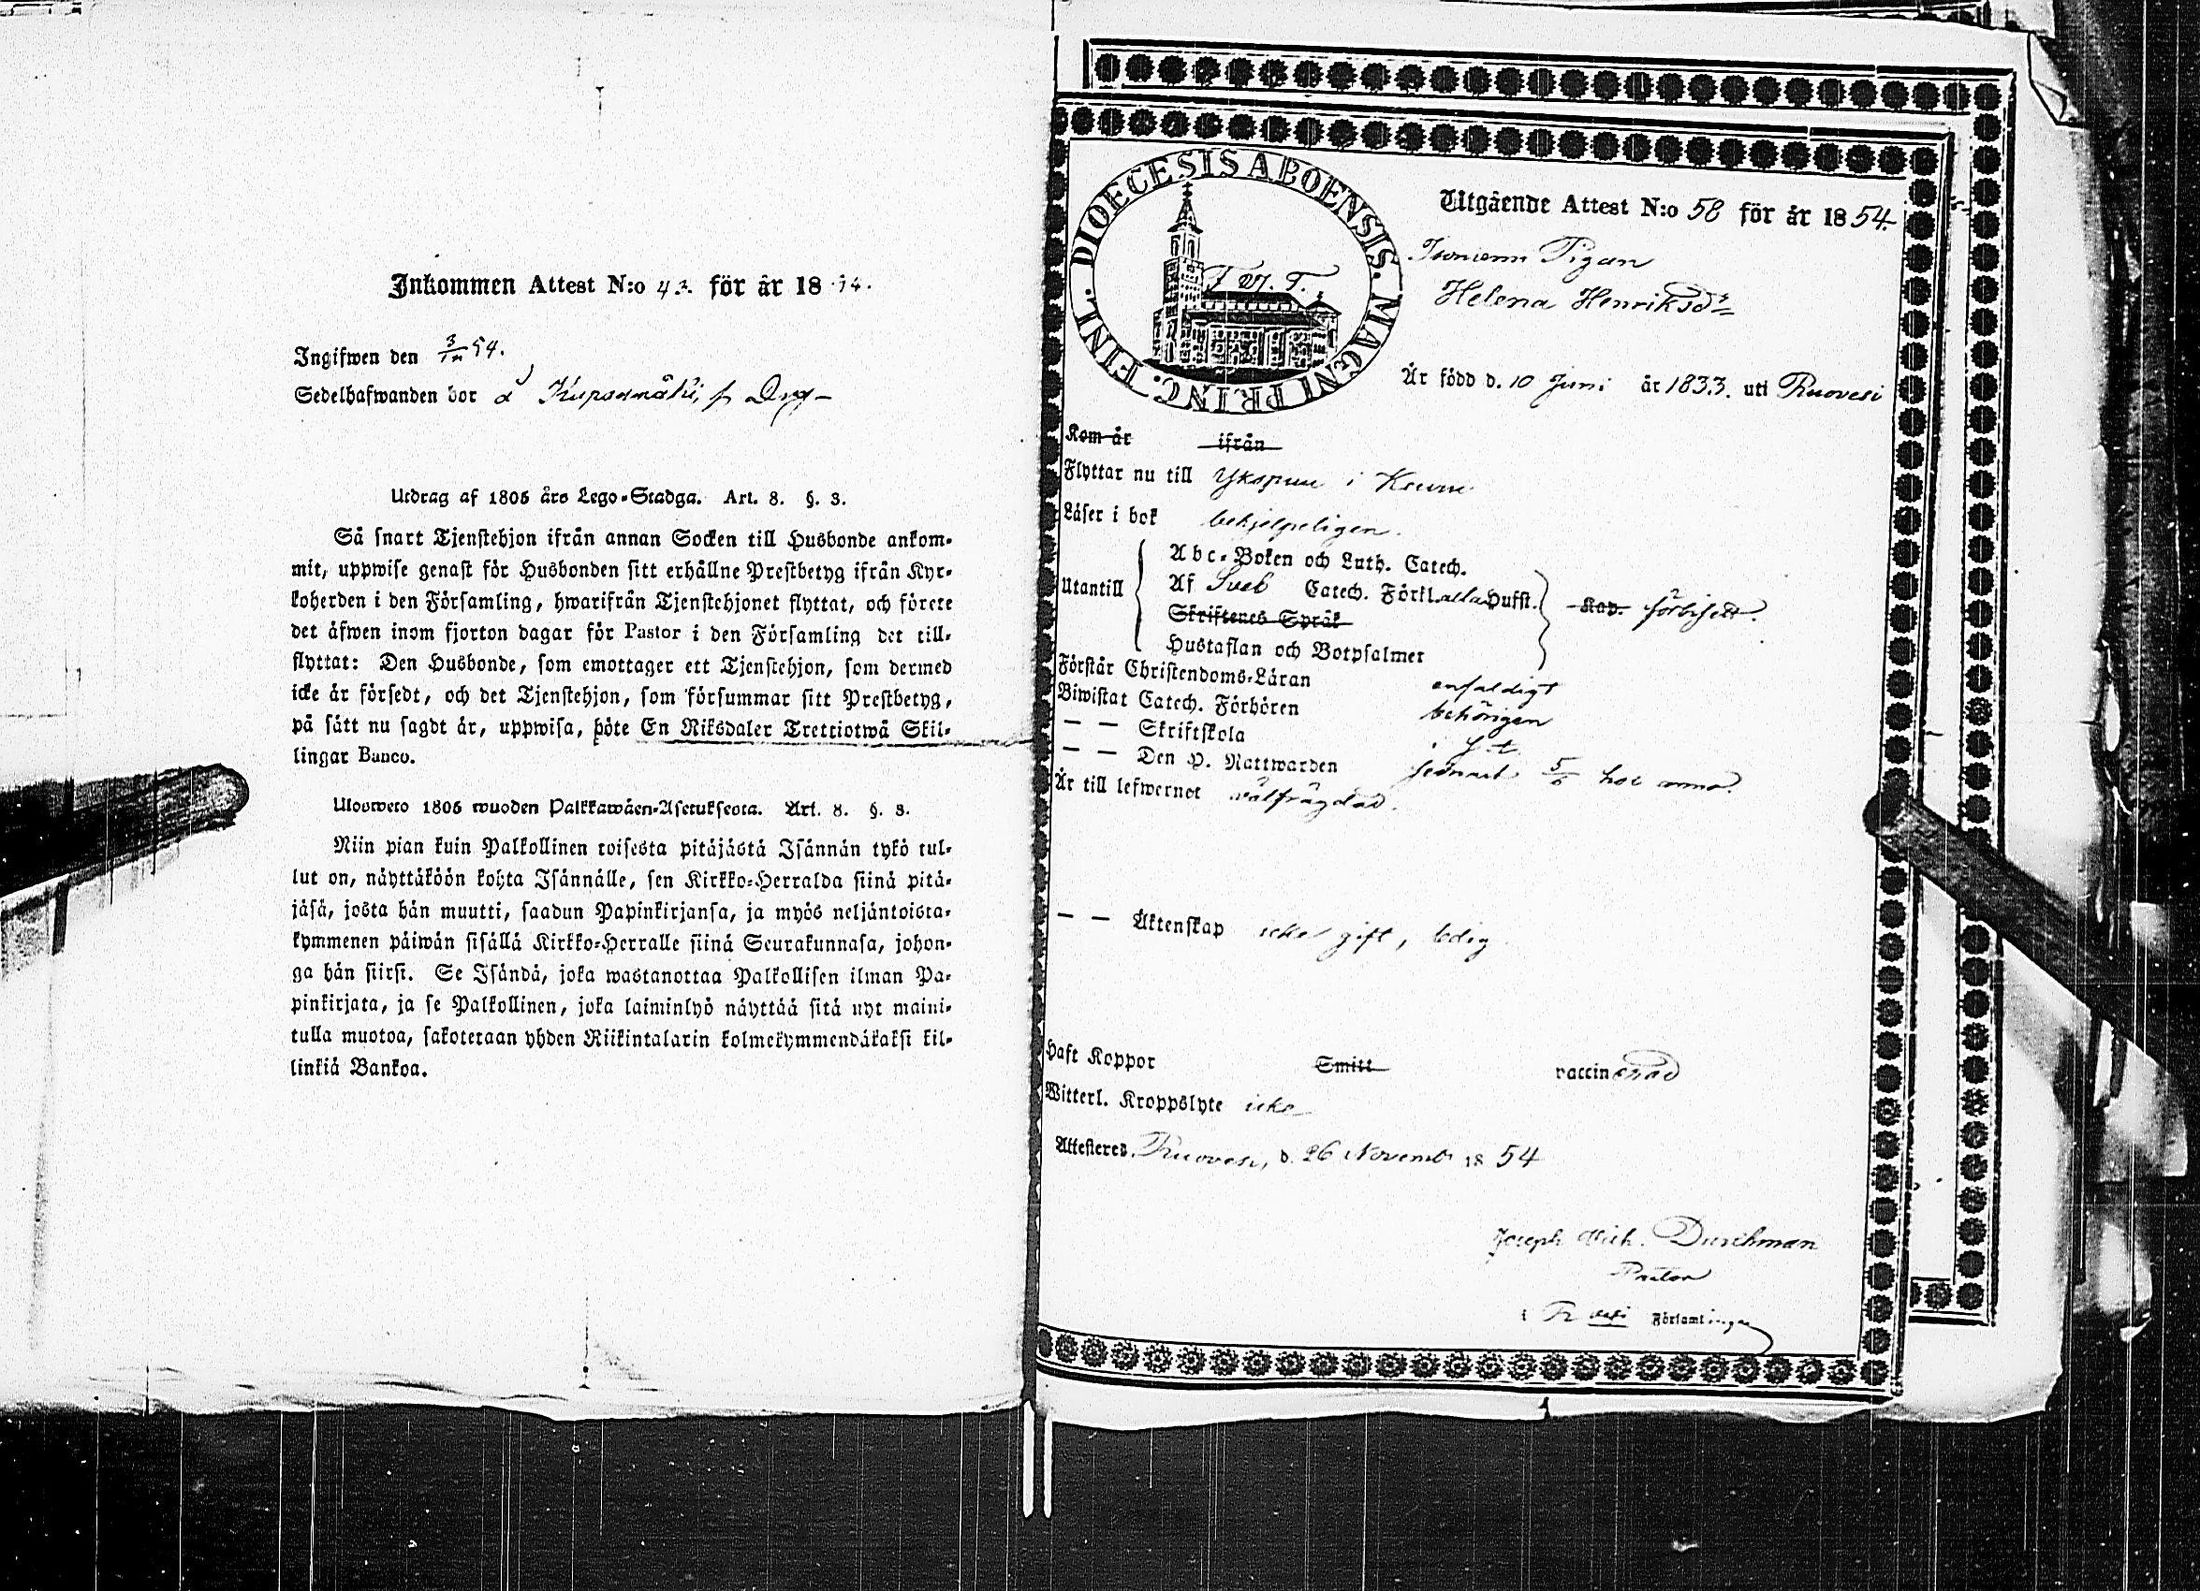 Inkommen Attest N:o 43. för år 18 54.
Ingifwen den 3/12 54.
Sedelhafwanden bor å
Utdrag af 1805 års Lego-Stadga. Art. 8. §. 3.
Så snart Tjenstehjon ifrån annan Socken till Husbonde ankom-
mit, uppwise genast för Husbonden sitt erhållne Prestbetyg ifrån Kyr-
koherden i den Församling, hwarifrån Tjenstehjonet flyttat, och förete
det äfwen inom fjorton dagar för Pastor i den Församling det till-
flyttat: Den Husbonde, som emottager ett Tjenstehjon, som dermed
icke är försedt, och det Tjenstehjon, som försummar sitt Prestbetyg,
på sätt nu sagdt är, uppwisa, böte En Riksdaler Trettiotwå Skil-
lingar Banco.
Ulosweto 1805 wuoden Palkkawäen-Asetuksesta. Art. 8. §. 3.
Niin pian kuin Palkollinen toisesta pitäjästä Isännän tykö tul-
lut on, näyttäköön kohta Isännälle, sen Kirkko-Herralda siinä pitä-
jäsä, josta hän muutti, saadun Papinkirjansa, ja myös neljäntoista-
kymmenen päiwän sisällä Kirkko-Herralle siinä Seurakunnasa, johon-
ga hän siirsi. Se Isändä, joka wastanottaa Palkollisen ilman Pa-
pinkirjata, ja se Palkollinen, joka laiminlyö näyttää sitä nyt maini-
tulla muotoa, sakotetaan yhden Riikintalarin kolmekymmendäkaksi kil-
linkiä Bankoa.
DIOECESIS ABOENSIS. MAGNI PRINC. FINL.
Utgående Attest N:o 58 för år 18 54.
Pigan
Helena Henriksdr
Är född d. 10 Juni år 1833. uti Ruovesi
Kom år ifrån
Flyttar nu till i
Läser i bok behjelpeligen.
Utantill
Abc-Boken och Luth. Catech.
Af Sveb Catech. Förkl. alla Hufst.
Skriftenes Språk
Hustaflan och Botpsalmer
Kap.
Förstår Christendoms-Läran enfaldigt
Biwistat Catech. Förhören behörigen
— — Skriftskola
— — Den H. Nattwarden senast 5/6 hoc anno.
Är till lefwernet välfrägdad.
— — Äktenskap icke gift, ledig
Haft Koppor Smitt vaccinerad
Witterl. Kroppslyte icke
Attesteres, Ruovesi, d. 26 Novemb 18 54
Joseph Wilh. Durchman
Pastor
i Församlingen